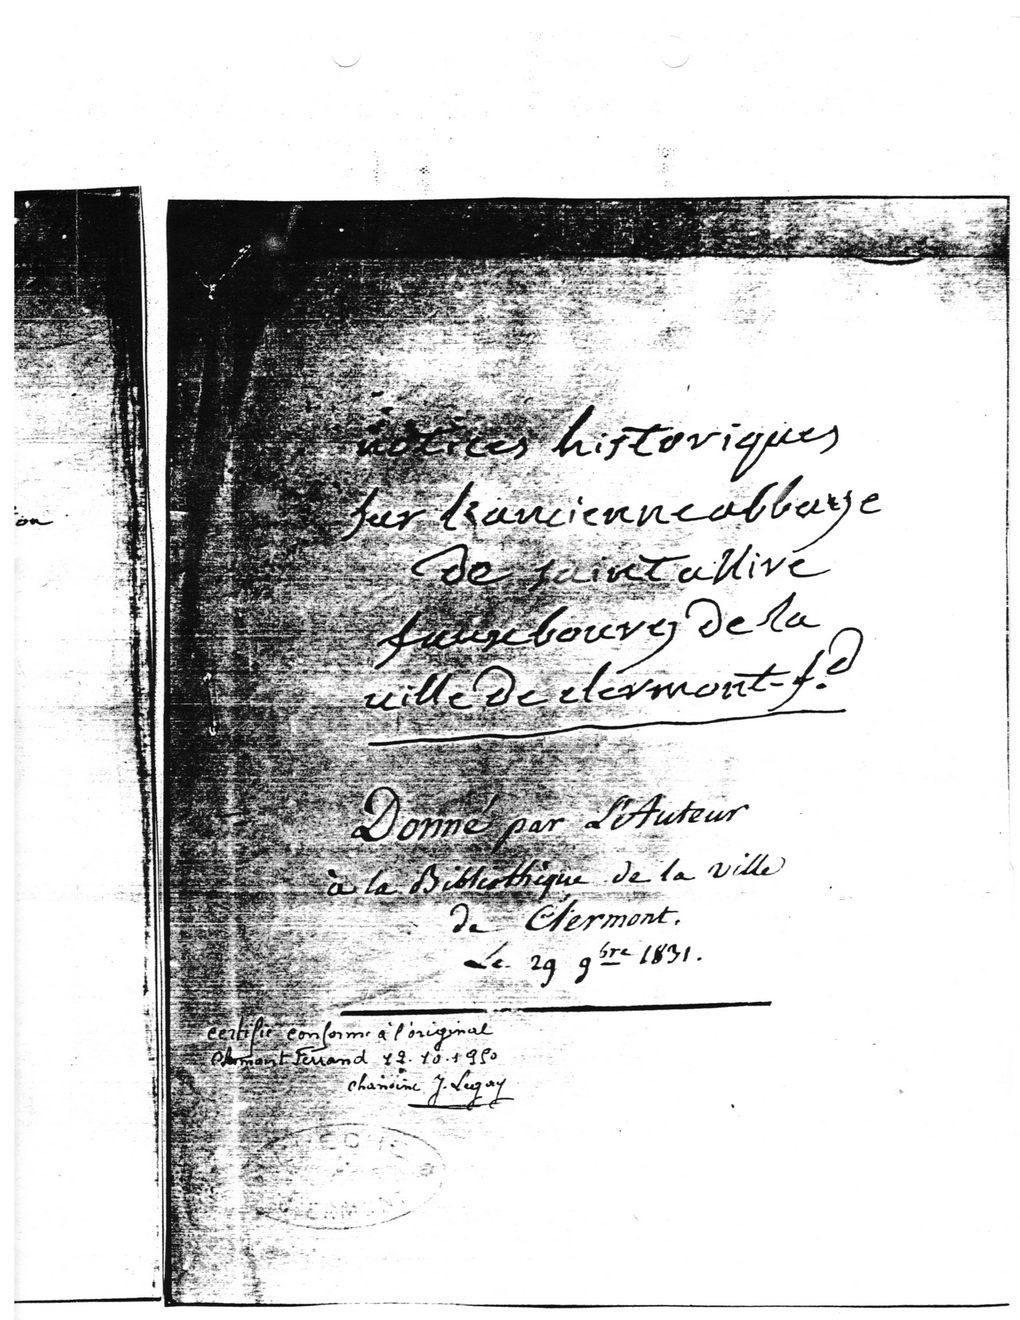 on
notices historiques
sur l'ancienne abbaye
de saint allire
fauxbourg de la
ville de clermont-f.d
Donné par L'Auteur
à la Bibliothèque de la ville
de Clermont.
Le 29 9bre 1831.
certifié conforme à l'original
Clermont Ferrand 12.10.1950
chanoine J. Legay